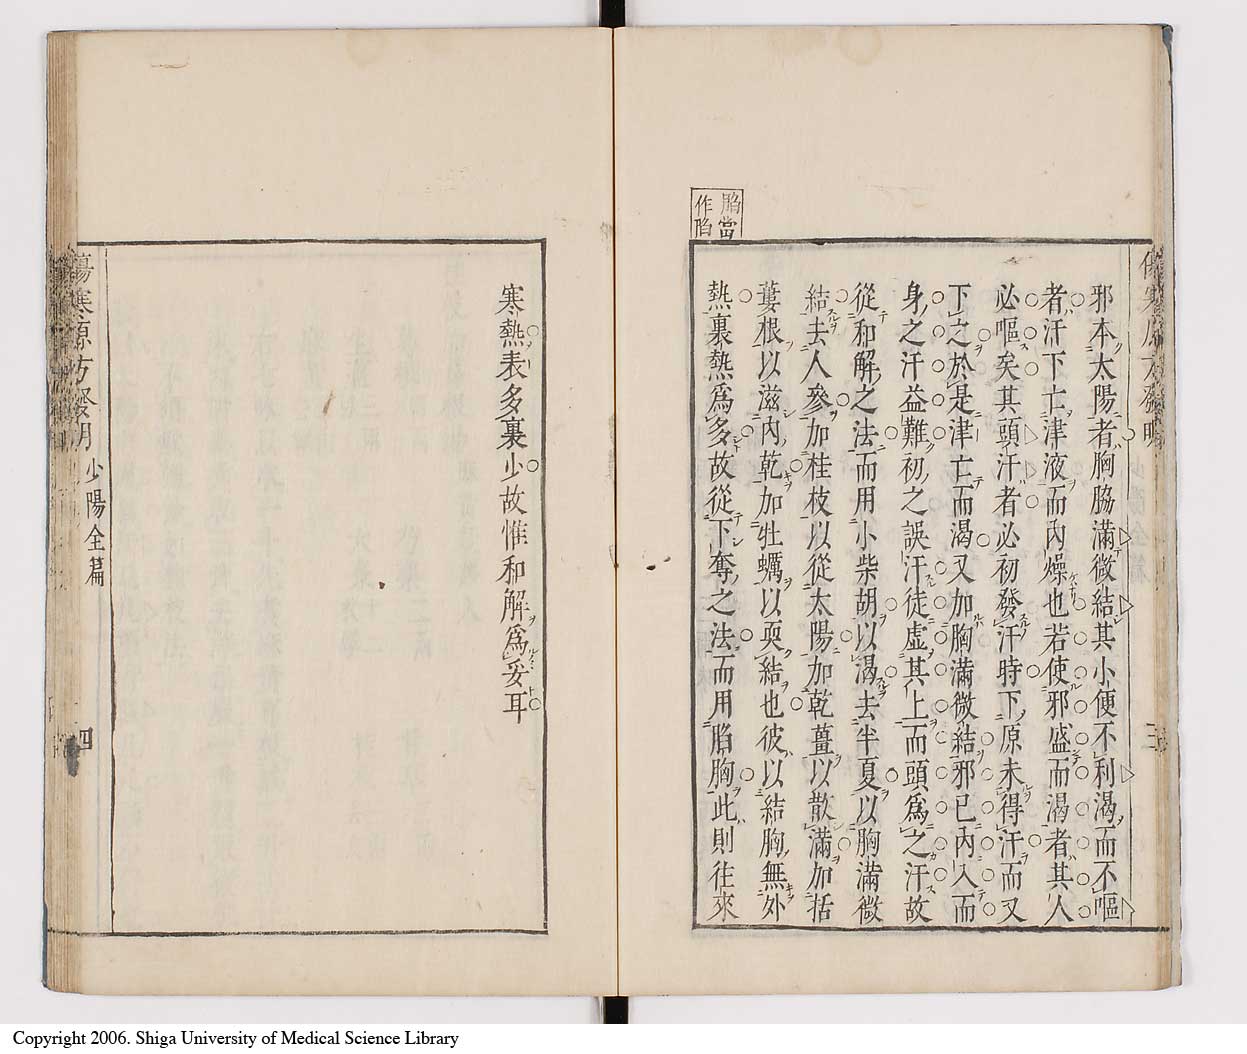 邪本太陽者胸脇滿微結其小便不利渴而不嘔
者汗下亡津液而內燥也若使邪盛而渴者其人
必嘔矣其頭汗者必初發汗時下原未得汗而又
下之於是津亡而渴又加胸滿微結邪已內入而
身之汗益難初之誤汗徒虛其上而頭為之汗故
從和解之法而用小柴胡以渴去半夏以胸滿微
結去人參加桂枝以從太陽加乾薑以散滿加括
蔞根以滋內乾加牡蠣以耎結也彼以結胸無外
熱裏熱為多故從下奪之法而用䐄胸此則往來
䐄當
作陷
寒熱表多裏少故惟和解為妥耳
傷寒原方發明 少陽全篇 四